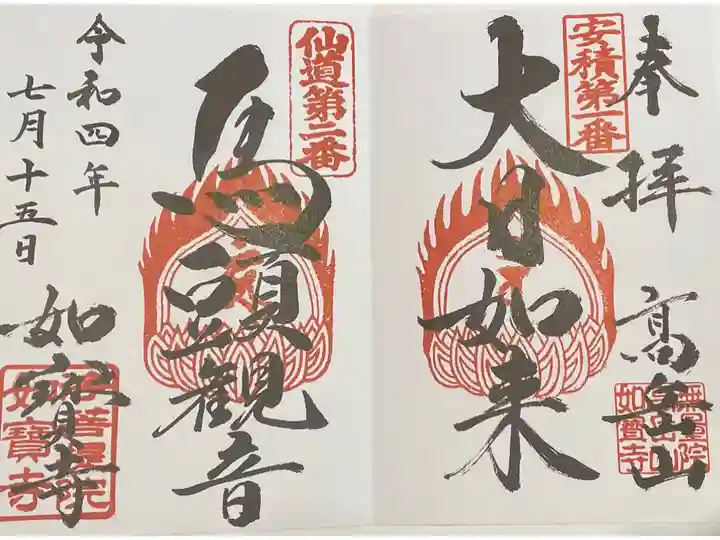 奉拝
安積第一番
大日如来
高岳山
如寶寺
仙道第二番
馬頭観音
令和四年
七月十五日
如寳寺
如寶寺